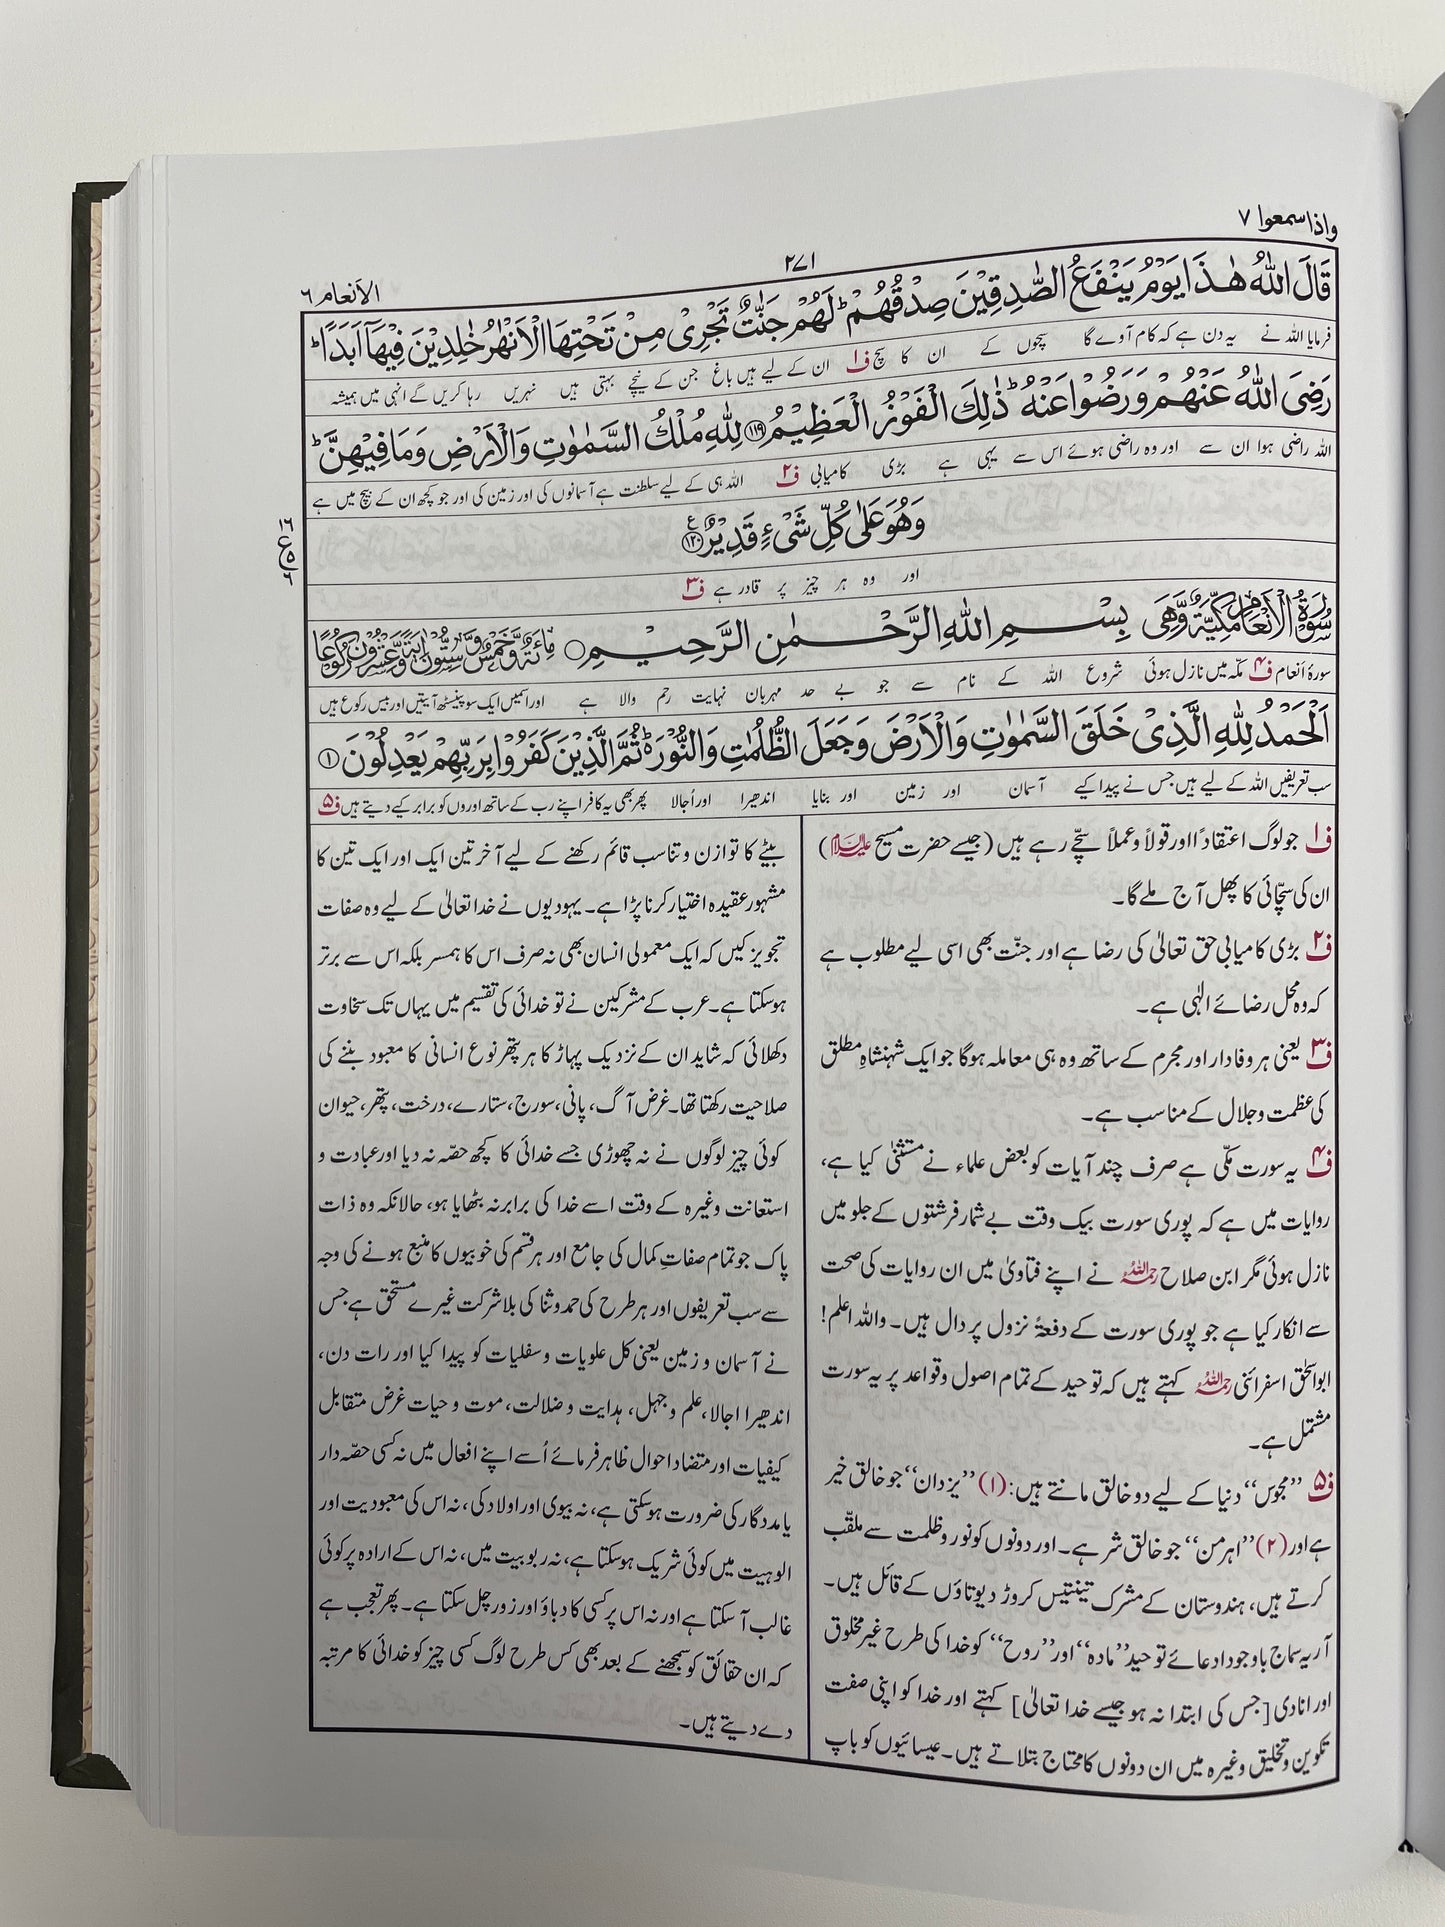 واذا سمعوا ۷
۲۷۱
الانعام ۶
قَالَ اللّٰهُ هٰذَا يَوْمُ يَنْفَعُ الصّٰدِقِيْنَ صِدْقُهُمْ ؕ لَهُمْ جَنّٰتٌ تَجْرِىْ مِنْ تَحْتِهَا الْاَنْهٰرُ خٰلِدِيْنَ فِيْهَاۤ اَبَدًا ؕ
فرمایا اللہ نے یہ دن ہے کہ کام آوے گا سچوں کے ان کا سچ ف۱ ان کے لیے ہیں باغ جن کے نیچے بہتی ہیں نہریں رہا کریں گے انہی میں ہمیشہ
رَضِىَ اللّٰهُ عَنْهُمْ وَرَضُوْا عَنْهُ ؕ ذٰلِكَ الْفَوْزُ الْعَظِيْمُ ﴿۱۱۹﴾ لِلّٰهِ مُلْكُ السَّمٰوٰتِ وَالْاَرْضِ وَمَا فِيْهِنَّ ؕ
اللہ راضی ہوا ان سے اور وہ راضی ہوئے اس سے یہی ہے بڑی کامیابی ف۲ اللہ ہی کے لیے سلطنت ہے آسمانوں کی اور زمین کی اور جو کچھ ان کے بیچ میں ہے
وَهُوَ عَلٰى كُلِّ شَىْءٍ قَدِيْرٌ ﴿۱۲۰﴾ ع
۱۶
ع ۵
۶
اور وہ ہر چیز پر قادر ہے ف۳
سُوْرَةُ الْاَنْعَامِ مَكِّيَّةٌ وَّهِىَ بِسْمِ اللّٰهِ الرَّحْمٰنِ الرَّحِيْمِ ○ مِائَةٌ وَّخَمْسٌ وَّسِتُّوْنَ اٰيَةً وَّعِشْرُوْنَ رُكُوْعًا
سورۂ انعام ف۴ مکہ میں نازل ہوئی شروع اللہ کے نام سے جو بے حد مہربان نہایت رحم والا ہے اور اسمیں ایک سو پینسٹھ آیتیں اور بیس رکوع ہیں
اَلْحَمْدُ لِلّٰهِ الَّذِىْ خَلَقَ السَّمٰوٰتِ وَالْاَرْضَ وَجَعَلَ الظُّلُمٰتِ وَالنُّوْرَ ؕ ثُمَّ الَّذِيْنَ كَفَرُوْا بِرَبِّهِمْ يَعْدِلُوْنَ ﴿۱﴾
سب تعریفیں اللہ کے لیے ہیں جس نے پیدا کیے آسمان اور زمین اور بنایا اندھیرا اور اُجالا پھر بھی یہ کافر اپنے رب کے ساتھ اوروں کو برابر کیے دیتے ہیں ف۵
ف۱ جو لوگ اعتقاداً اور قولاً وعملاً سچے رہے ہیں (جیسے حضرت مسیح علیہ السلام)
ان کی سچائی کا پھل آج ملے گا۔
ف۲ بڑی کامیابی حق تعالیٰ کی رضا ہے اور جنّت بھی اسی لیے مطلوب ہے
کہ وہ محل رضائے الٰہی ہے۔
ف۳ یعنی ہر وفادار اور مجرم کے ساتھ وہ ہی معاملہ ہوگا جو ایک شہنشاہِ مطلق
کی عظمت و جلال کے مناسب ہے۔
ف۴ یہ سورت مکّی ہے صرف چند آیات کو بعض علماء نے مستثنیٰ کیا ہے،
روایات میں ہے کہ پوری سورت بیک وقت بے شمار فرشتوں کے جلو میں
نازل ہوئی مگر ابن صلاح رحمہ اللہ نے اپنے فتاویٰ میں ان روایات کی صحت
سے انکار کیا ہے جو پوری سورت کے دفعۃً نزول پر دال ہیں۔ واللہ اعلم!
ابو اسحٰق اسفرائنی رحمہ اللہ کہتے ہیں کہ توحید کے تمام اصول و قواعد پر یہ سورت
مشتمل ہے۔
ف۵ ”مجوس“ دنیا کے لیے دو خالق مانتے ہیں: (۱) ”یزدان“ جو خالق خیر
ہے اور (۲) ”اہرمن“ جو خالق شر ہے۔ اور دونوں کو نور و ظلمت سے ملقّب
کرتے ہیں، ہندوستان کے مشرک تینتیس کروڑ دیوتاؤں کے قائل ہیں۔
آریہ سماج باوجود ادعائے توحید ”مادہ“ اور ”روح“ کو خدا کی طرح غیر مخلوق
اور انادی [جس کی ابتدا نہ ہو جیسے خدا تعالیٰ] کہتے اور خدا کو اپنی صفت
تکوین و تخلیق وغیرہ میں ان دونوں کا محتاج بتلاتے ہیں۔ عیسائیوں کو باپ
بیٹے کا توازن و تناسب قائم رکھنے کے لیے آخر تین ایک اور ایک تین کا
مشہور عقیدہ اختیار کرنا پڑا ہے۔ یہودیوں نے خدا تعالیٰ کے لیے وہ صفات
تجویز کیں کہ ایک معمولی انسان بھی نہ صرف اس کا ہمسر بلکہ اس سے برتر
ہوسکتا ہے۔ عرب کے مشرکین نے تو خدائی کی تقسیم میں یہاں تک سخاوت
دکھلائی کہ شاید ان کے نزدیک پہاڑ کا ہر پتھر نوع انسانی کا معبود بننے کی
صلاحیت رکھتا تھا۔ غرض آگ، پانی، سورج، ستارے، درخت، پتھر، حیوان
کوئی چیز لوگوں نے نہ چھوڑی جسے خدائی کا کچھ حصّہ نہ دیا اور عبادت و
استعانت وغیرہ کے وقت اسے خدا کی برابر نہ بٹھایا ہو، حالانکہ وہ ذات
پاک جو تمام صفات کمال کی جامع اور ہر قسم کی خوبیوں کا منبع ہونے کی وجہ
سے سب تعریفوں اور ہر طرح کی حمد و ثنا کی بلا شرکت غیرے مستحق ہے جس
نے آسمان و زمین یعنی کل علویات و سفلیات کو پیدا کیا اور رات دن،
اندھیرا اجالا، علم و جہل، ہدایت و ضلالت، موت و حیات غرض متقابل
کیفیات اور متضاد احوال ظاہر فرمائے اُسے اپنے افعال میں نہ کسی حصّہ دار
یا مددگار کی ضرورت ہوسکتی ہے، نہ بیوی اور اولاد کی، نہ اس کی معبودیت اور
الوہیت میں کوئی شریک ہوسکتا ہے، نہ ربوبیت میں، نہ اس کے ارادہ پر کوئی
غالب آسکتا ہے اور نہ اس پر کسی کا دباؤ اور زور چل سکتا ہے۔ پھر تعجب ہے
کہ ان حقائق کو سمجھنے کے بعد بھی کس طرح لوگ کسی چیز کو خدائی کا مرتبہ
دے دیتے ہیں۔